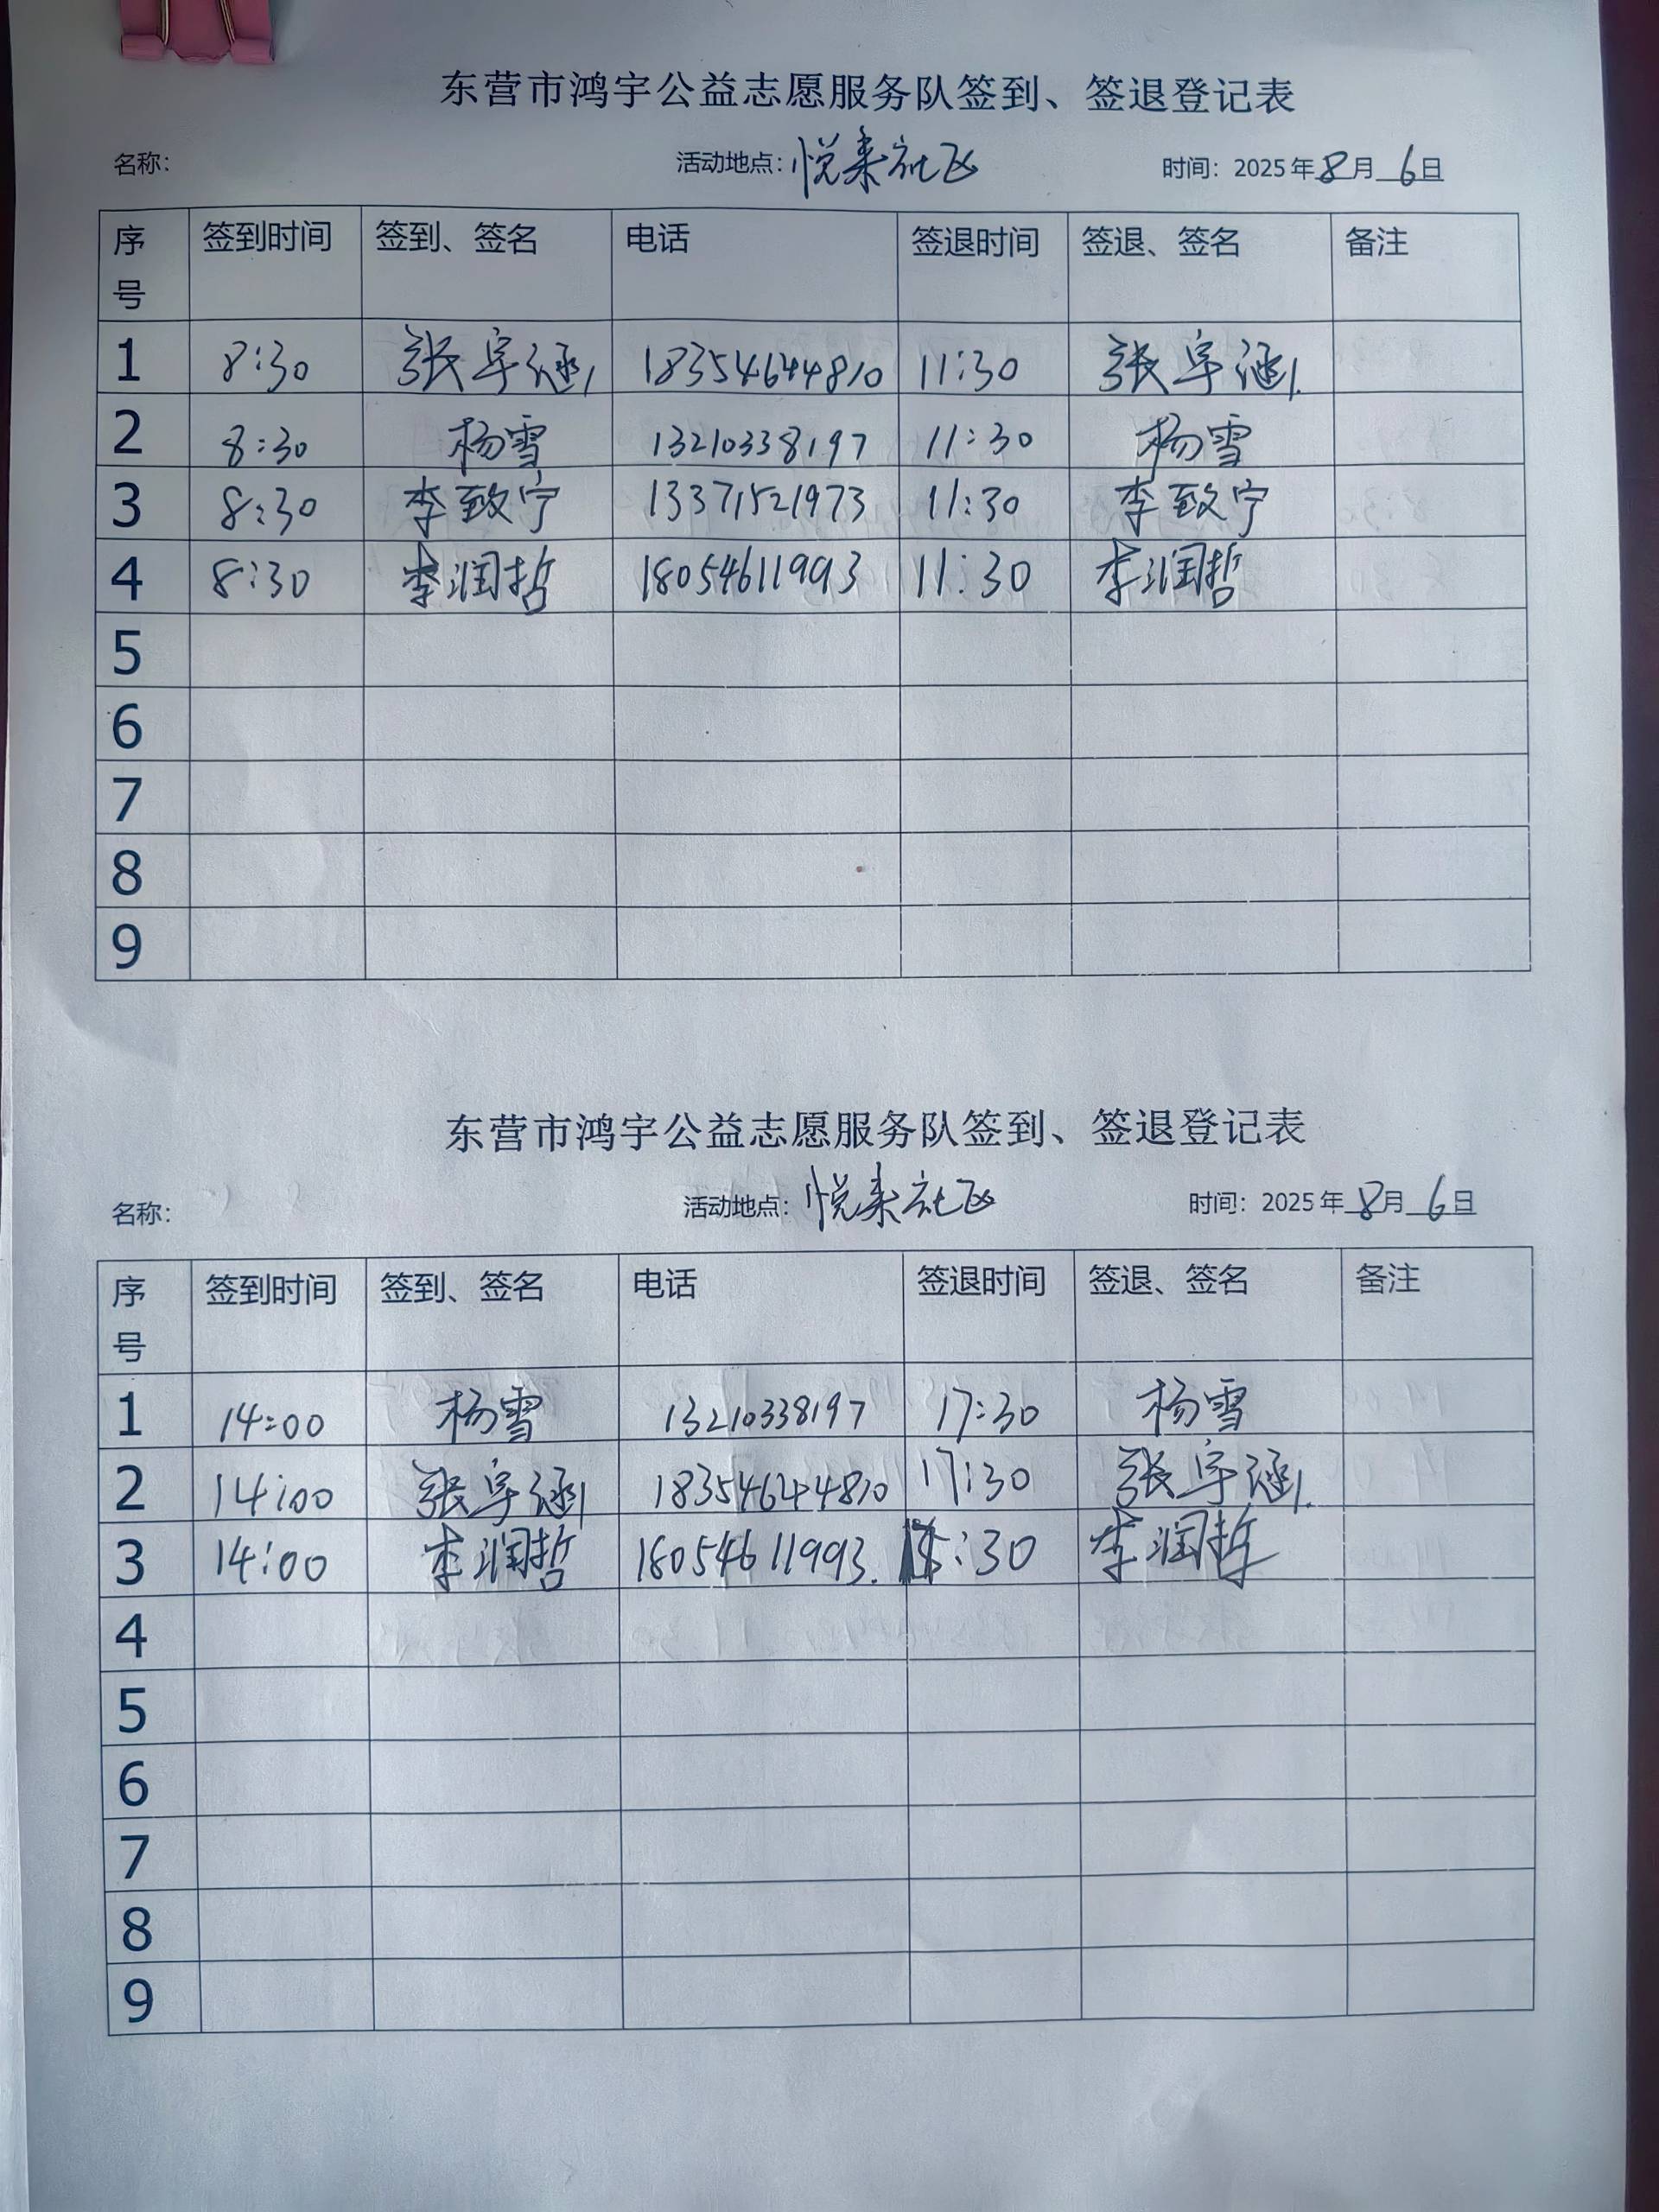 东营市鸿宇公益志愿服务队签到、签退登记表
名称： 活动地点：悦来社区 时间：2025年8月6日
序号 签到时间 签到、签名 电话 签退时间 签退、签名 备注
1 8:30 张宇涵 18354644810 11:30 张宇涵
2 8:30 杨雪 13210338197 11:30 杨雪
3 8:30 李致宁 13371521973 11:30 李致宁
4 8:30 李润哲 18054611993 11:30 李润哲
5
6
7
8
9
东营市鸿宇公益志愿服务队签到、签退登记表
名称： 活动地点：悦来社区 时间：2025年8月6日
序号 签到时间 签到、签名 电话 签退时间 签退、签名 备注
1 14:00 杨雪 13210338197 17:30 杨雪
2 14:00 张宇涵 18354644810 17:30 张宇涵
3 14:00 李润哲 18054611993. :30 李润哲
4
5
6
7
8
9